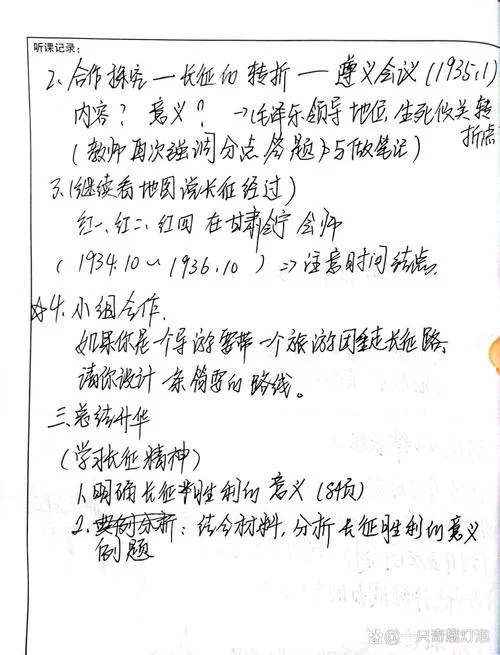 听课记录:
2、合作探究—长征的转折—遵义会议(1935.1)
内容? 意义? →毛泽东领导地位,生死攸关转
折点
(教师再次强调分点答题与做笔记)
3、(继续看地图说长征经过)
红一、红二、红四 在甘肃会宁会师
(1934.10~1936.10)⇒注意时间结点.
☆4.小组合作.
如果你是一个导游要带一个旅游团重走长征路、
请你设计一条简要的路线。
三、总结升华
(学习长征精神)
1.明确长征胜利的意义(84页)
2. 典例分析:结合材料,分析长征胜利的意义
例题
一只奇趣灯泡